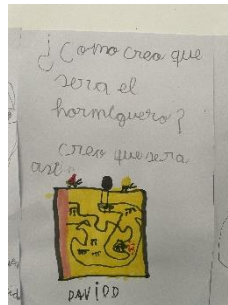 ¿Como creo que
sera el
hormiguero?
creo que sera
asi
DAVIDD